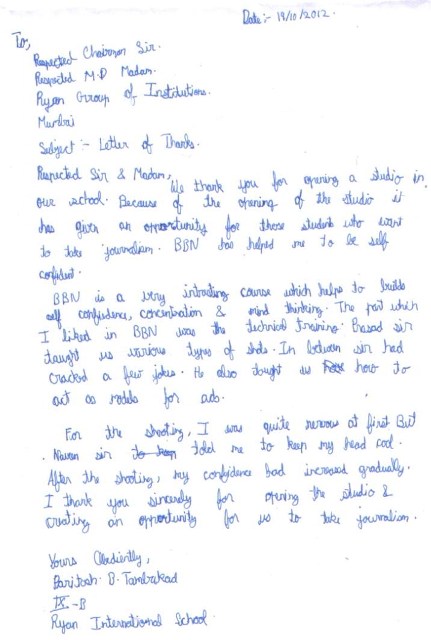 Date :- 19/10/2012.
To,
Respected Chairman Sir.
Respected M.D Madam.
Ryan Group of Institutions.
Mumbai
Subject :- Letter of Thanks.
Respected Sir & Madam,
We thank you for opening a studio in
our school. Because of the opening of the studio it
has given an opportunity for those student who want
to take journalism. BBN has helped me to be self
confident.
BBN is a very intresting course which helps to builds
self confidence, concentration & mind thinking. The part which
I liked in BBN was the technical training. Prasad sir
taught us various types of shots. In between sir had
cracked a few jokes. He also taught us how to
act as models for ads.
For the shooting, I was quite nervous at first But
Naveen sir to keep told me to keep my head cool.
After the shooting, my confidence had increased gradually.
I thank you sincerely for opening the studio &
creating an opportunity for us to take journalism.
Yours Obediently,
Paritosh. B.
IX - B
Ryan International School.